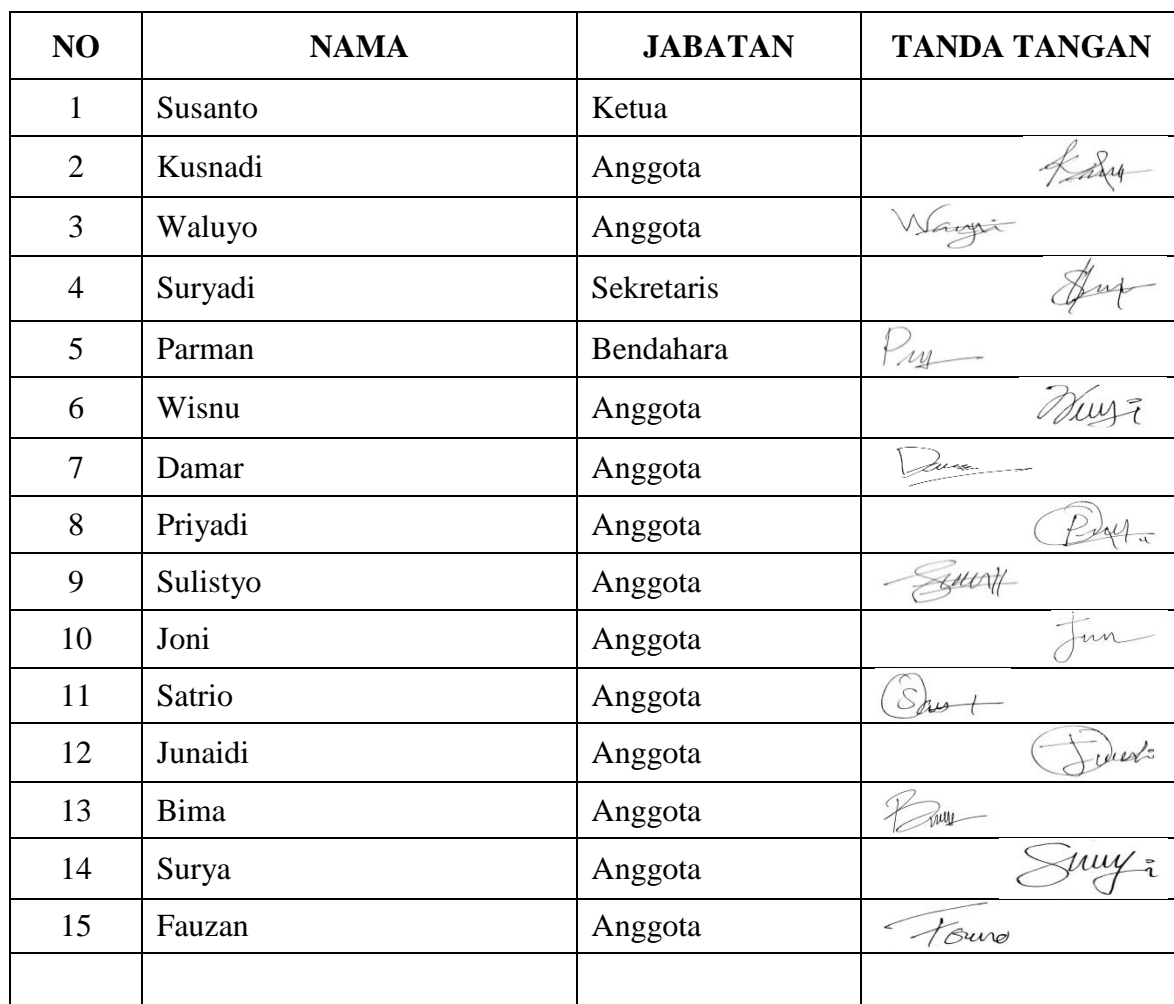 NO NAMA JABATAN TANDA TANGAN
1 Susanto Ketua
2 Kusnadi Anggota
3 Waluyo Anggota
4 Suryadi Sekretaris
5 Parman Bendahara
6 Wisnu Anggota
7 Damar Anggota
8 Priyadi Anggota
9 Sulistyo Anggota
10 Joni Anggota
11 Satrio Anggota
12 Junaidi Anggota
13 Bima Anggota
14 Surya Anggota
15 Fauzan Anggota